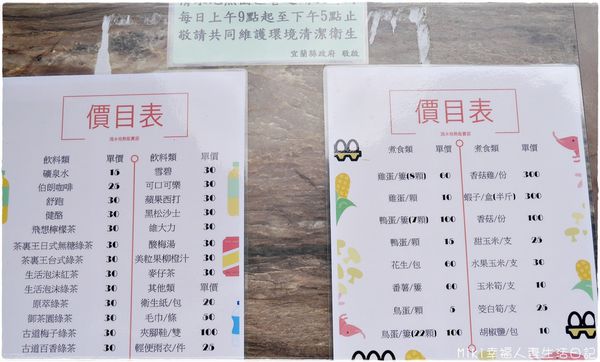 每日上午9點起至下午5點止
敬請共同維護環境清潔衛生
宜蘭縣政府 敬啟
價目表
飲料類 單價 飲料類 單價
礦泉水 15 雪碧 30
伯朗咖啡 25 可口可樂 30
舒跑 30 蘋果西打 30
健酪 30 黑松沙士 30
飛想檸檬茶 30 維大力 30
茶裏王日式無糖綠茶 30 酸梅湯 30
茶裏王台式綠茶 30 美粒果柳橙汁 30
生活泡沫紅茶 30 麥仔茶 30
生活泡沫綠茶 30 其他類 單價
原萃綠茶 30 衛生紙/包 20
御茶園綠茶 30 毛巾/條 50
古道梅子綠茶 30 夾腳鞋/雙 100
古道百香綠茶 30 輕便雨衣/件 25
價目表
煮食類 單價 煮食類 單價
雞蛋/簍(8顆) 60 香菇蛋/份 300
雞蛋/顆 10 蝦子/盒(半斤) 300
鴨蛋/簍(7顆) 100 香菇/份 100
鴨蛋/顆 15 甜玉米/支 25
花生/包 60 水果玉米/支 30
番薯/簍 60 玉米筍/支 10
鳥蛋/顆 5 筊白筍/支 25
鳥蛋/簍(22顆) 100 胡椒鹽/包 10
Miki幸福人妻生活日記